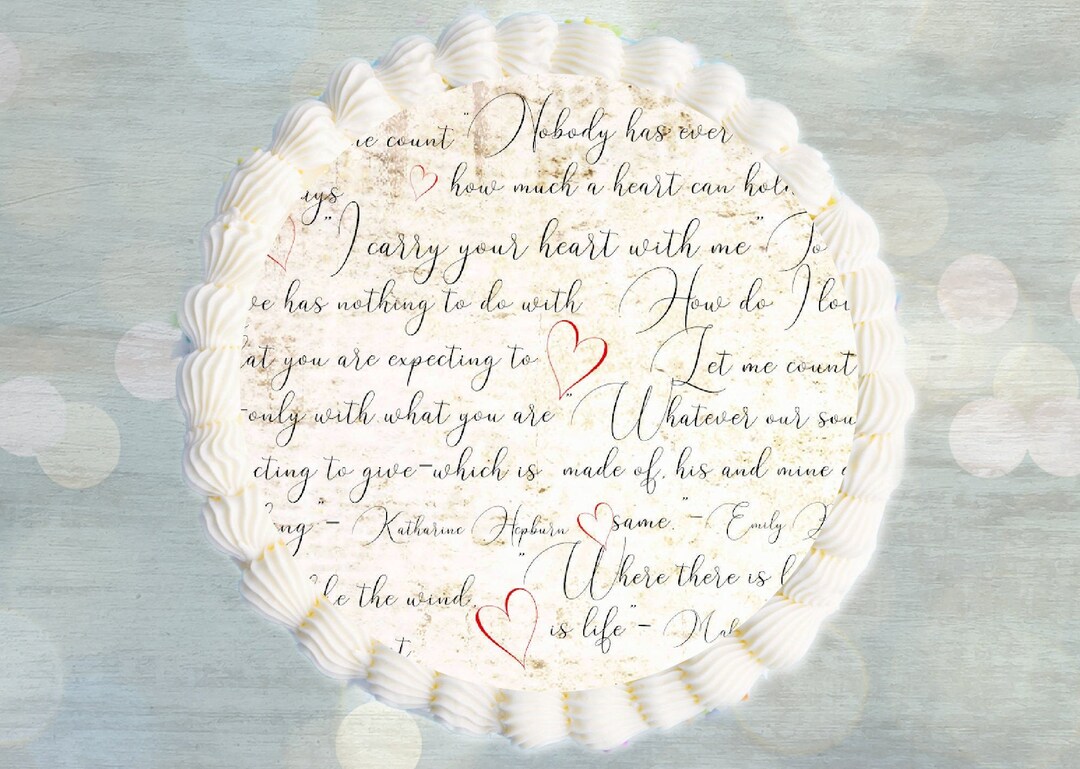 ve count "Nobody has ever
ays how much a heart can hol
"I carry your heart with me" "To
ve has nothing to do with How do I lov
at you are expecting to Let me count
-only with what you are "Whatever our sou
cting to give-which is made of, his and mine
ng"- Katharine Hepburn same."- Emily
ke the wind, "Where there is l
is life"- Mah